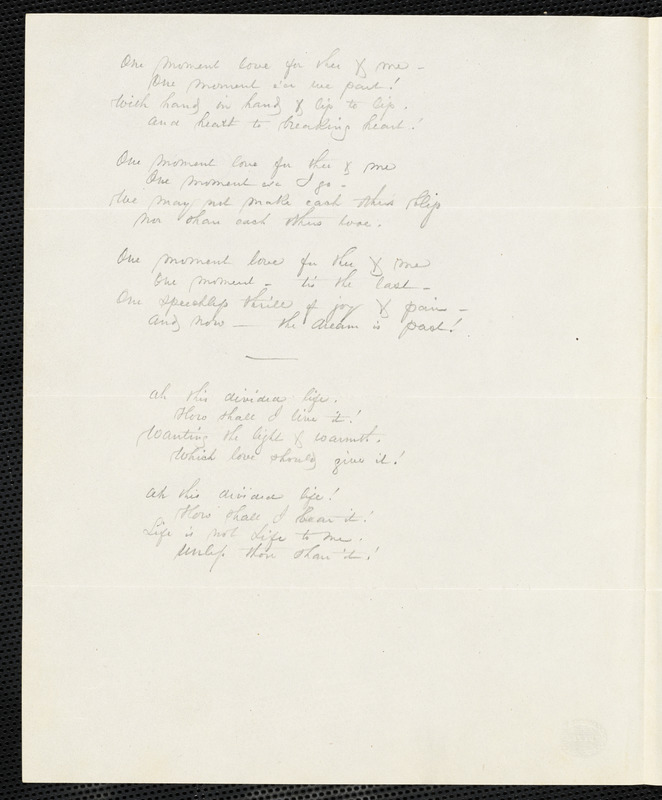 One moment love for thee & me -
One moment e'er we part!
With hand in hand & lip to lip.
And heart to breaking heart!
One moment love for thee & me
One moment ere I go -
We may not make each others
Nor share each others love.
One moment love for thee & me
One moment - 'tis the last -
One speechless thrill of joy & pain -
And now - the dream is past!
Ah this divided life.
How shall I live it!
Wanting the light & warmth.
Which love should give it!
Ah this divided life!
How shall I bear it!
Life is not Life to me.
Unless thou share 't!